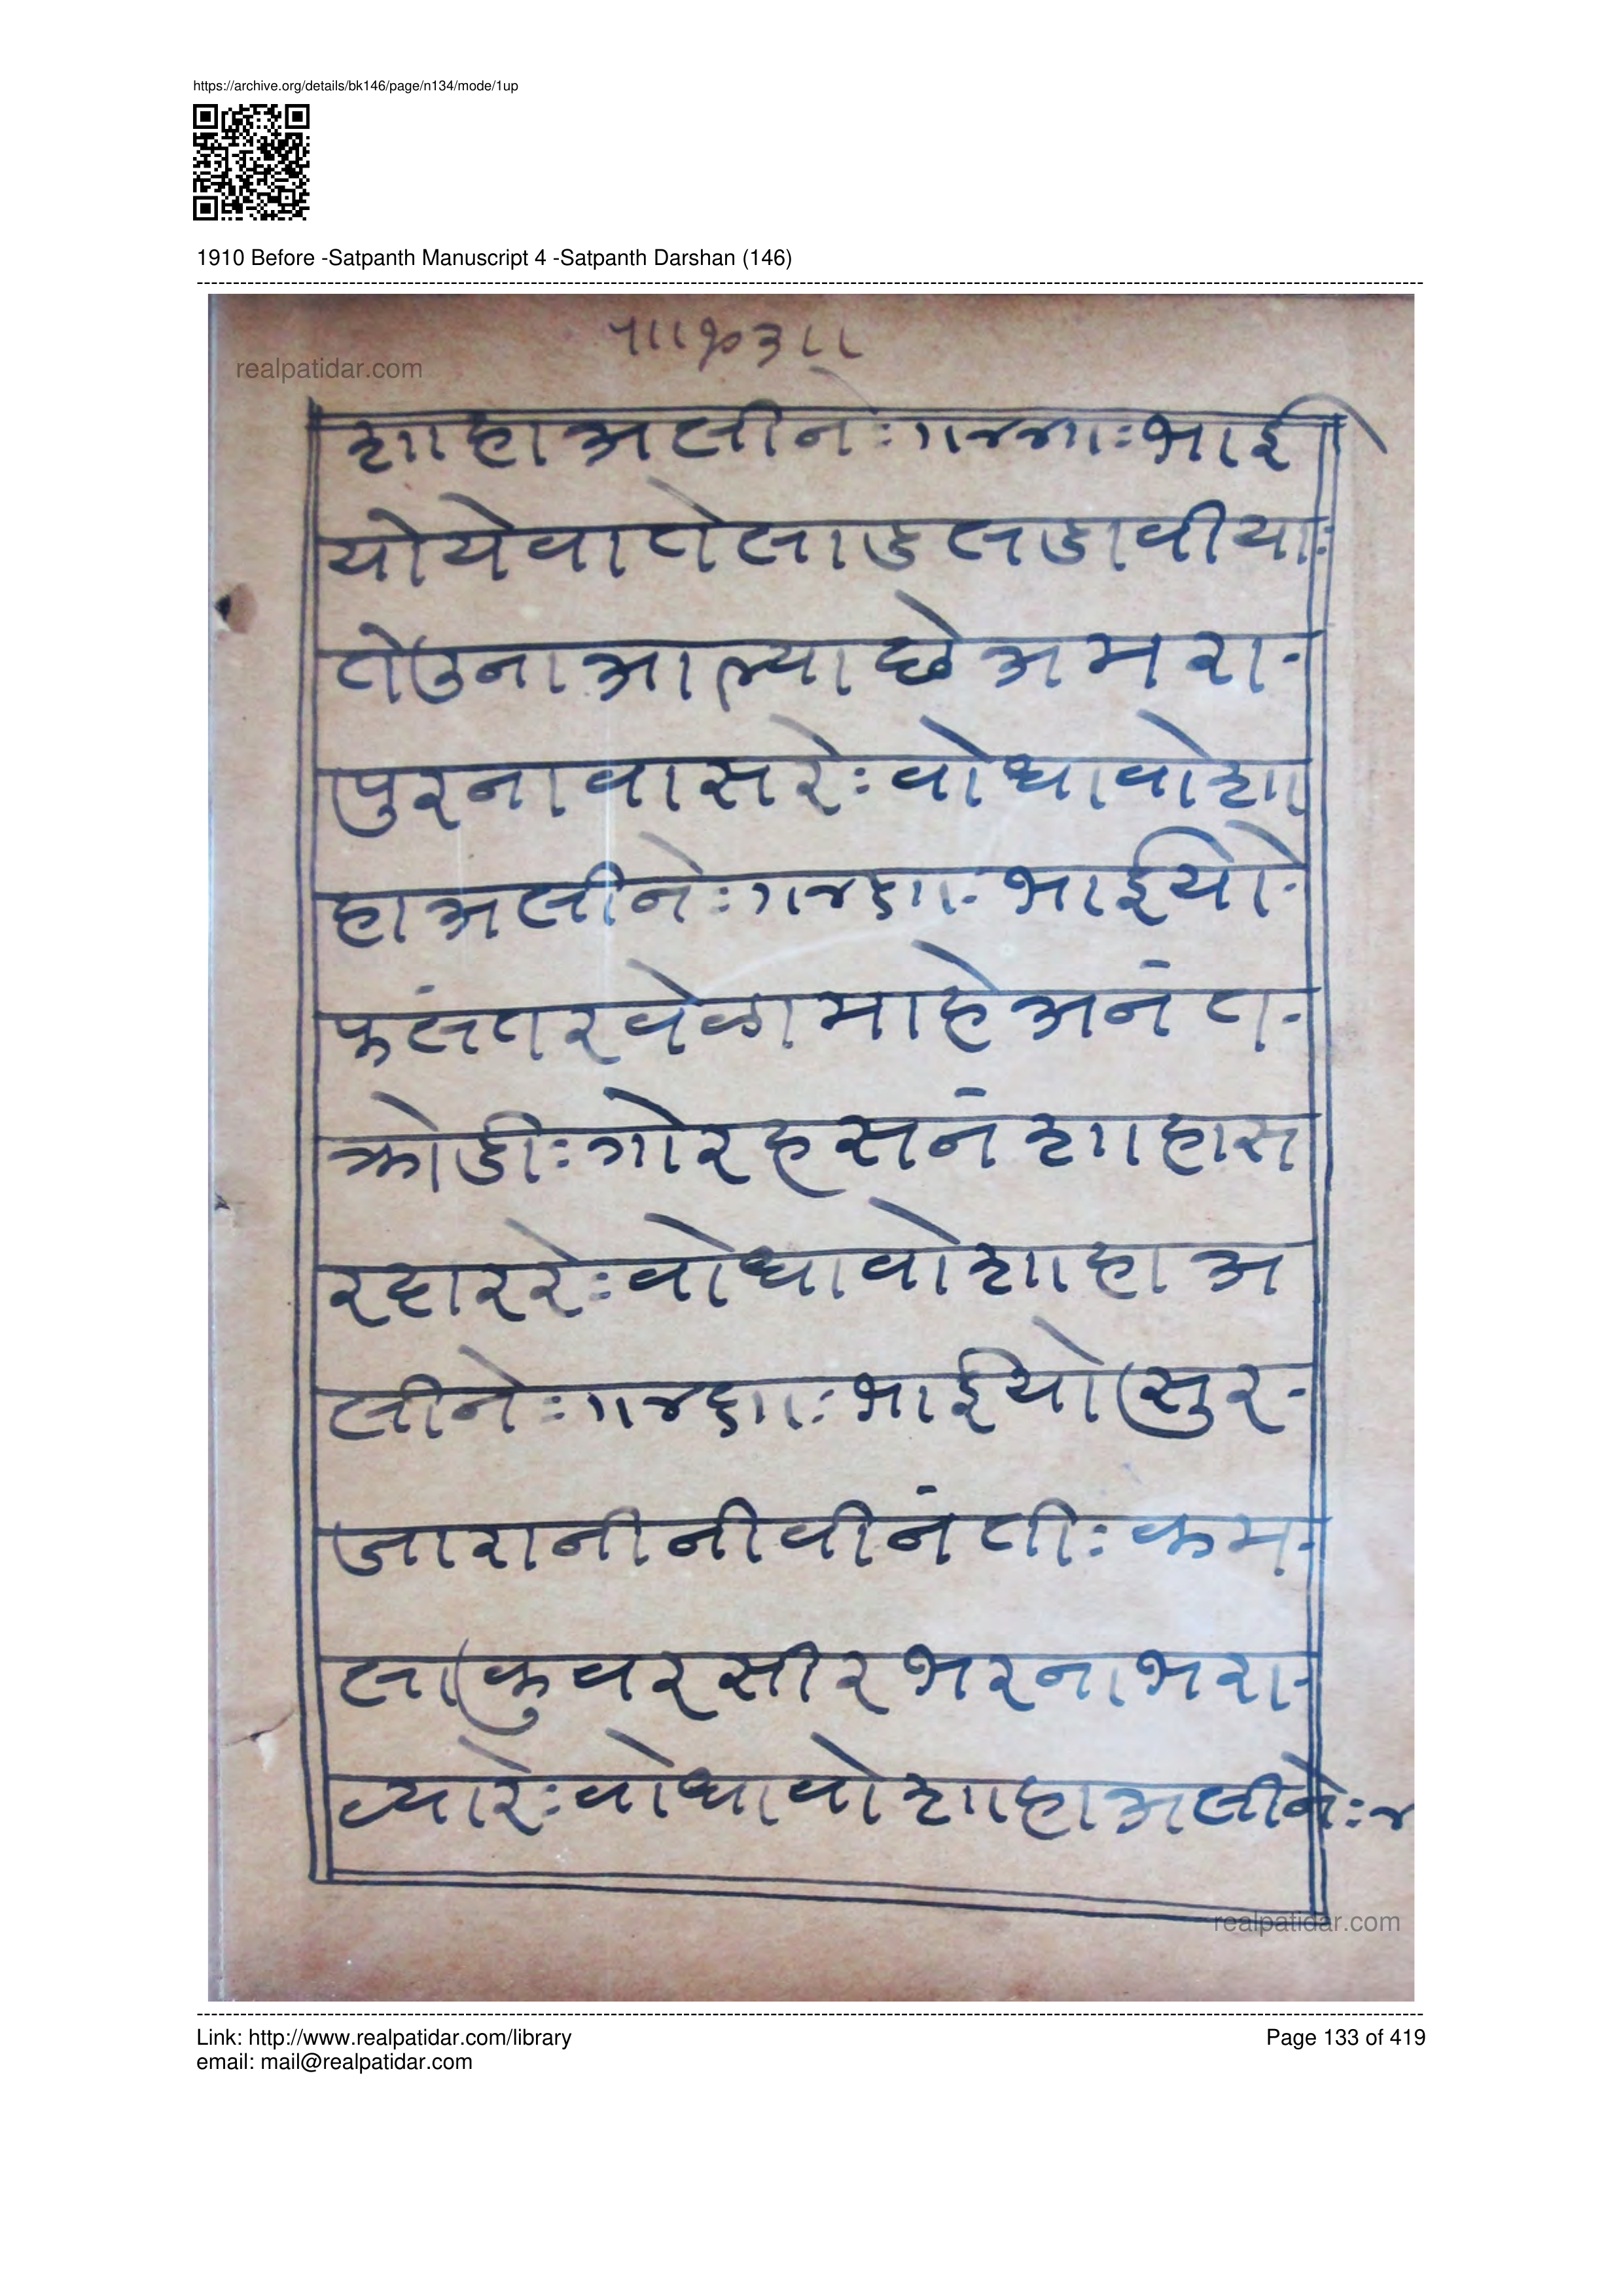 https://archive.org/details/bk146/page/n134/mode/1up
1910 Before -Satpanth Manuscript 4 -Satpanth Darshan (146)
realpatidar.com
शाहा अलीनेः भाई
यो येवा तो लाड लडावीयाः
तेउना आल्या छे अमरा-
पुरना वासरेः वोधावो शा
हा अलीनेः भाईयो-
फलंतर वेळा माहे अनंत-
क्रोडीः गोर हसनं शाहा स
रहाररेः वोधावो शाहा अ
लीनेः भाईयो सुर-
जा रानी नी वीनंतीः कम-
ला कुवर सीर भरना भरा-
व्यारेः वोधावो शाहा अलीनेः
realpatidar.com
Link: http://www.realpatidar.com/library
Page 133 of 419
email: mail@realpatidar.com